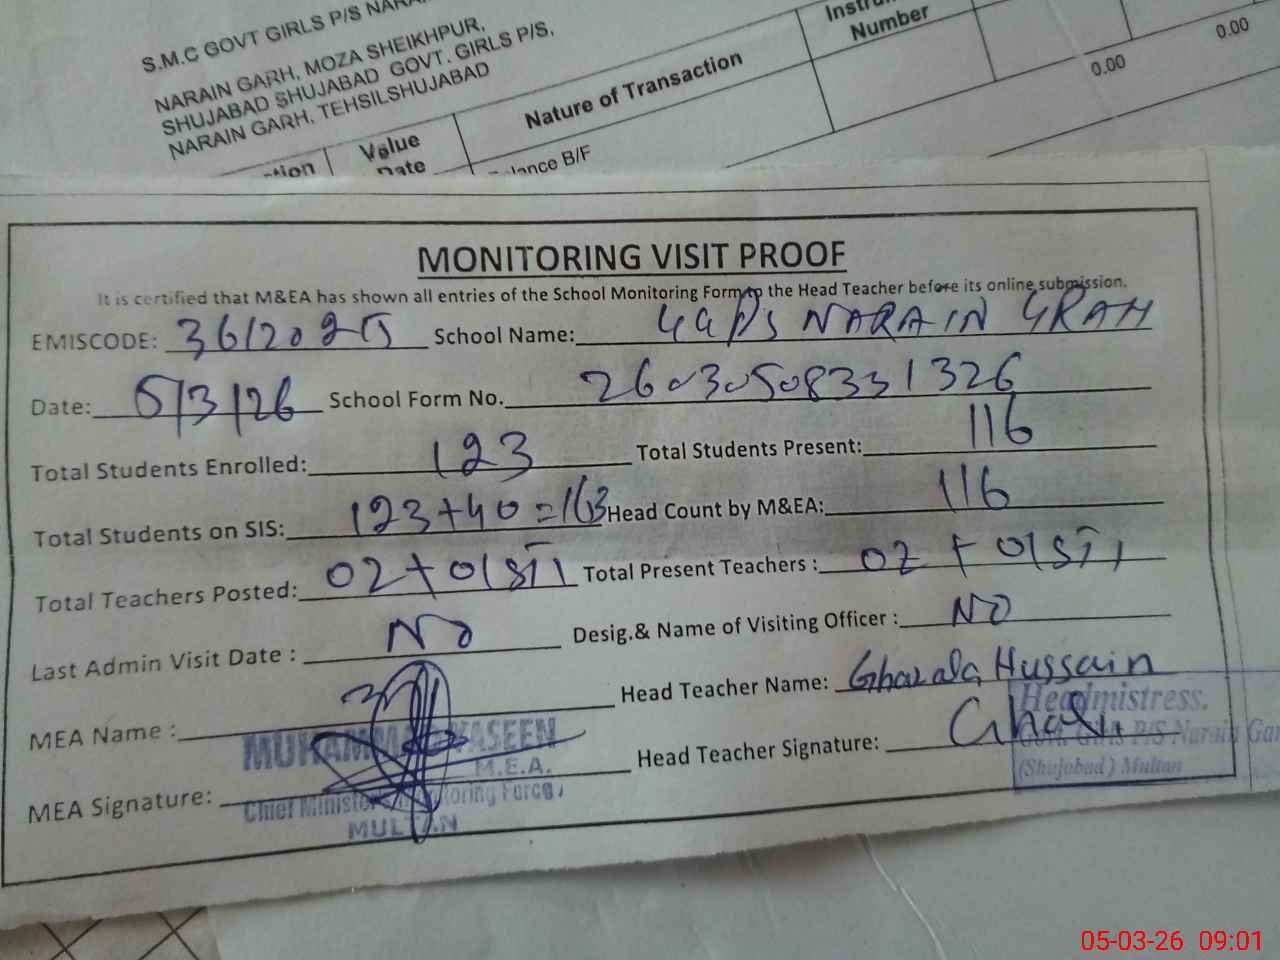 S.M.C GOVT GIRLS P/S
NARAIN GARH, MOZA SHEIKHPUR,
SHUJABAD SHUJABAD GOVT. GIRLS P/S,
NARAIN GARH, TEHSILSHUJABAD
Value Date
Nature of Transaction
Number
0.00
0.00
B/F
MONITORING VISIT PROOF
It is certified that M&EA has shown all entries of the School Monitoring Form to the Head Teacher before its online submission.
EMISCODE: 36120295 School Name: GGPS NARAIN GRAH
Date: 5/3/26 School Form No. 26030508331326
Total Students Enrolled: 123 Total Students Present: 116
Total Students on SIS: 123+40=163 Head Count by M&EA: 116
Total Teachers Posted: 02+01STI Total Present Teachers : 02 + 01STI
Last Admin Visit Date : NO Desig.& Name of Visiting Officer : NO
MEA Name : Head Teacher Name: Ghazala Hussain
MEA Signature: Head Teacher Signature:
MUHAMMAD YASEEN
M.E.A.
Chief Minister Monitoring Force
MULTAN
Headmistress.
Govt. Girls P/S Narain Gar
(Shujabad) Multan
05-03-26 09:01